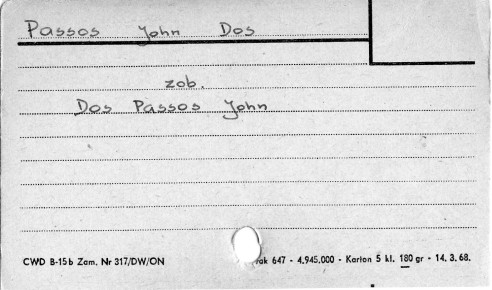 Passos John Dos
zob.
Dos Passos John
CWD B-15b Zam. Nr 317/DW/ON 647 - 4.945.000 - Karton 5 kl. 180 gr - 14. 3. 68.